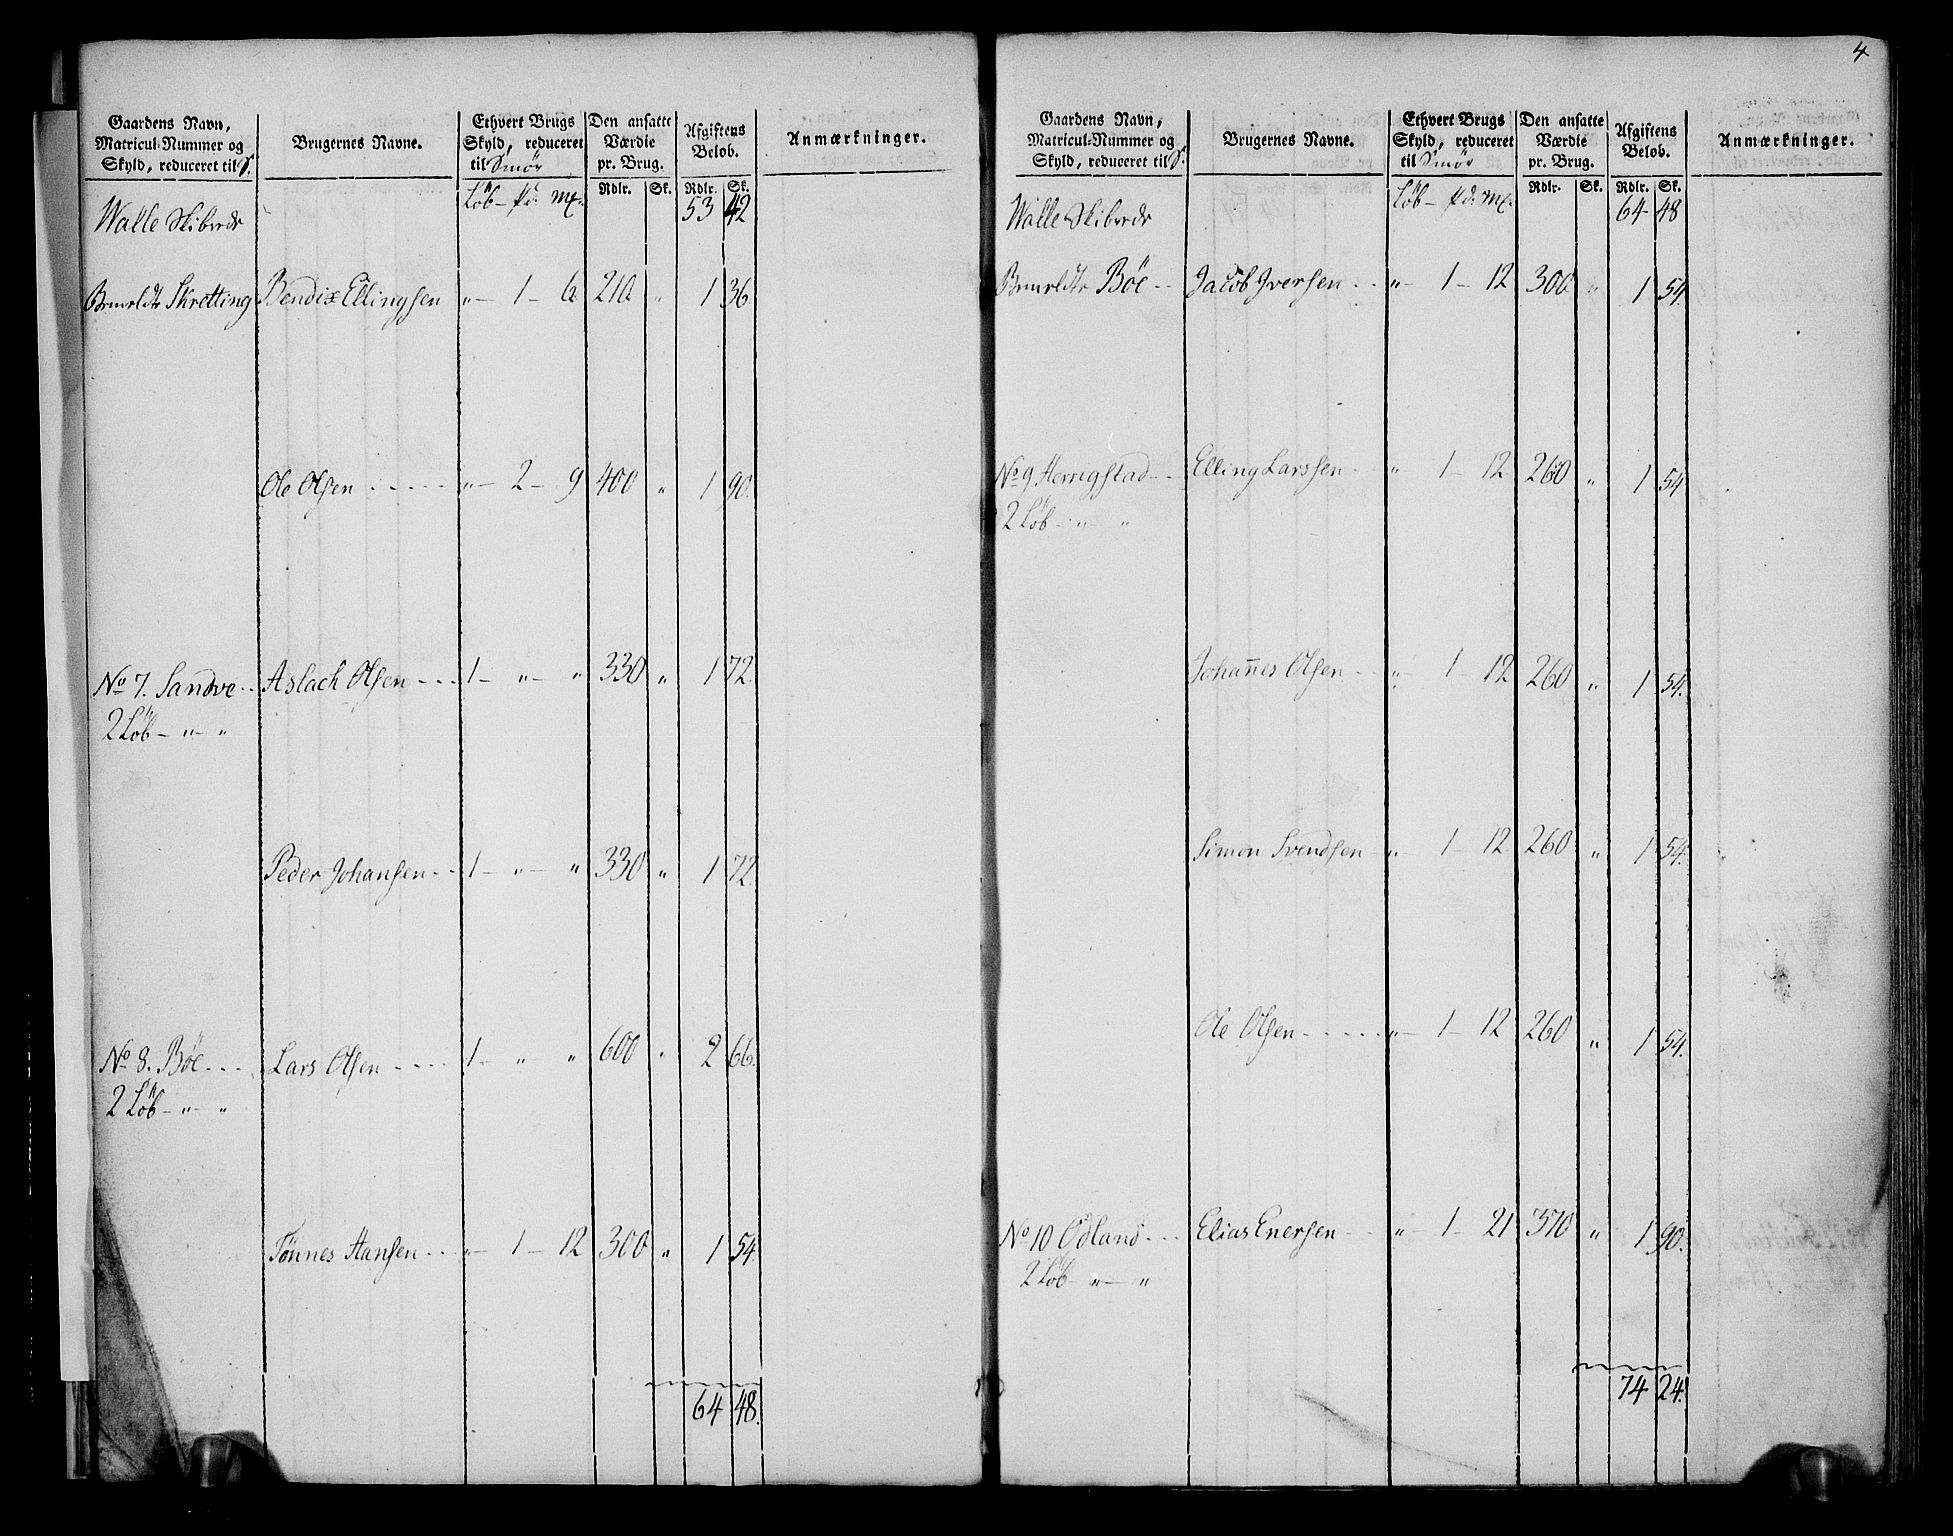 Gaardens Navn, Matricul-Nummer og Skyld, reduceret til S. | Brugernes Navne. | Ethvert Brugs Skyld, reduceret til Smör | Den ansatte Værdie pr. Brug. | Afgiftens Beløb. | Anmærkninger.
Löb – pd: mk. | Rdlr. | Sk. | Rdlr. | Sk.
Walle Skibrede | 53 | 42
Skretting | Bendix Ellingsen | „ – 1 – 6 | 210 | „ | 1 | 36
Ole Olsen | „ – 2 – 9 | 400 | „ | 1 | 90.
No 7. Sandve | Aslach Olsen | 1 – „ – „ | 330 | „ | 1 | 72.
2 Löb – „ – „
Peder Johansen | 1 – „ – „ | 330 | „ | 1 | 72.
No 8. Böe | Lars Olsen | 1 – „ – „ | 600 | „ | 2 | 66.
2 Löb – „ – „
Tönnes Hansen | „ – 1 – 12 | 300 | „ | 1 | 54.
64 | 48.
4
Gaardens Navn, Matricul-Nummer og Skyld, reduceret til S. | Brugernes Navne. | Ethvert Brugs Skyld, reduceret til Smör | Den ansatte Værdie pr. Brug. | Afgiftens Beløb. | Anmærkninger.
Löb – pd: mk. | Rdlr. | Sk. | Rdlr. | Sk.
Walle Skibrede | 64 | 48
Böe | Jacob Iversen | „ – 1 – 12 | 300 | „ | 1 | 54.
No 9 Herrigstad | Elling Larssen | „ – 1 – 12 | 260 | „ | 1 | 54
2 Löb – „ – „
Johannes Olsen | „ – 1 – 12 | 260 | „ | 1 | 54.
Simon Svendsen | „ – 1 – 12 | 260 | „ | 1 | 54.
Ole Olsen | „ – 1 – 12 | 260 | „ | 1 | 54.
No 10 Odland | Elias Enersen | „ – 1 – 21 | 370 | „ | 1 | 90.
2 Löb „ – „
74 | 24.